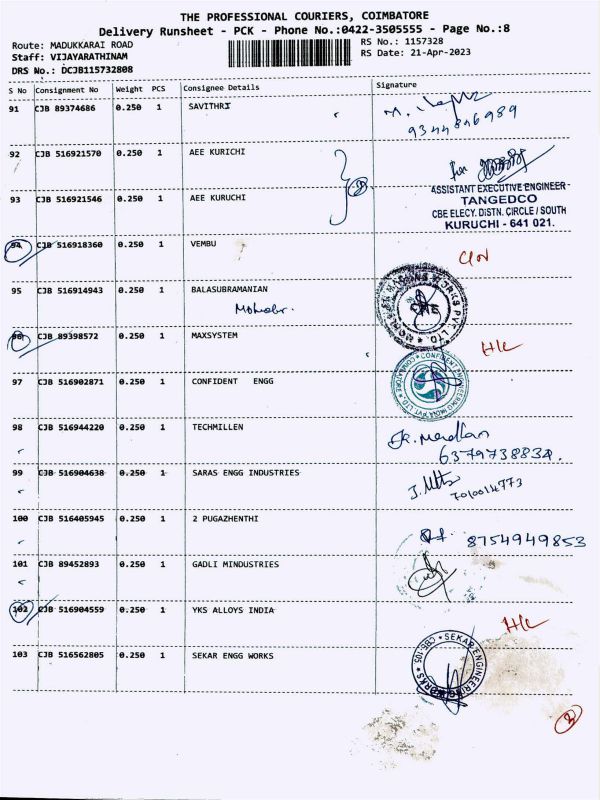 THE PROFESSIONAL COURIERS, COIMBATORE
Delivery Runsheet - PCK - Phone No.:0422-3505555 - Page No.:8
Route: MADUKKARAI ROAD
RS No.: 1157328
Staff: VIJAYARATHINAM
RS Date: 21-Apr-2023
DRS No.: DCJB115732808
S No Consignment No Weight PCS Consignee Details Signature
91 CJB 89374686 0.250 1 SAVITHRI
9344846989
92 CJB 516921570 0.250 1 AEE KURICHI
for
93 CJB 516921546 0.250 1 AEE KURUCHI
ASSISTANT EXECUTIVE ENGINEER
TANGEDCO
CBE ELECY. DISTN. CIRCLE / SOUTH
KURUCHI - 641 021.
94 CJB 516918360 0.250 1 VEMBU
95 CJB 516914943 0.250 1 BALASUBRAMANIAN
96 CJB 89398572 0.250 1 MAXSYSTEM
97 CJB 516902871 0.250 1 CONFIDENT ENGG
CONFIDENT ENGINEERING INDIA PVT LTD. COIMBATORE
98 CJB 516944220 0.250 1 TECHMILLEN
6379738834.
99 CJB 516904638 0.250 1 SARAS ENGG INDUSTRIES
100 CJB 516405945 0.250 1 2 PUGAZHENTHI
8754949853
101 CJB 89452893 0.250 1 GADLI MINDUSTRIES
102 CJB 516904559 0.250 1 YKS ALLOYS INDIA
103 CJB 516562805 0.250 1 SEKAR ENGG WORKS
SEKAR ENGINEERING WORKS
2